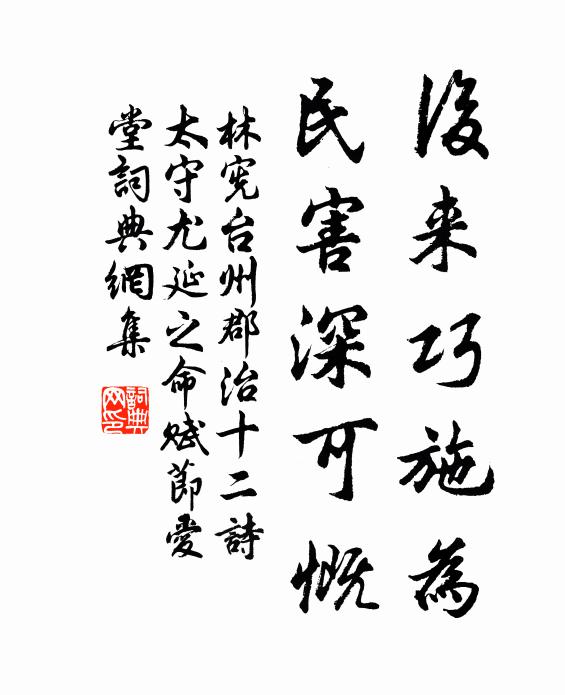 後来巧施為
民害深可慨
林宪台州郡治十二詩
太守尤延之命赋節爱
堂詞典網集
詞典
网印